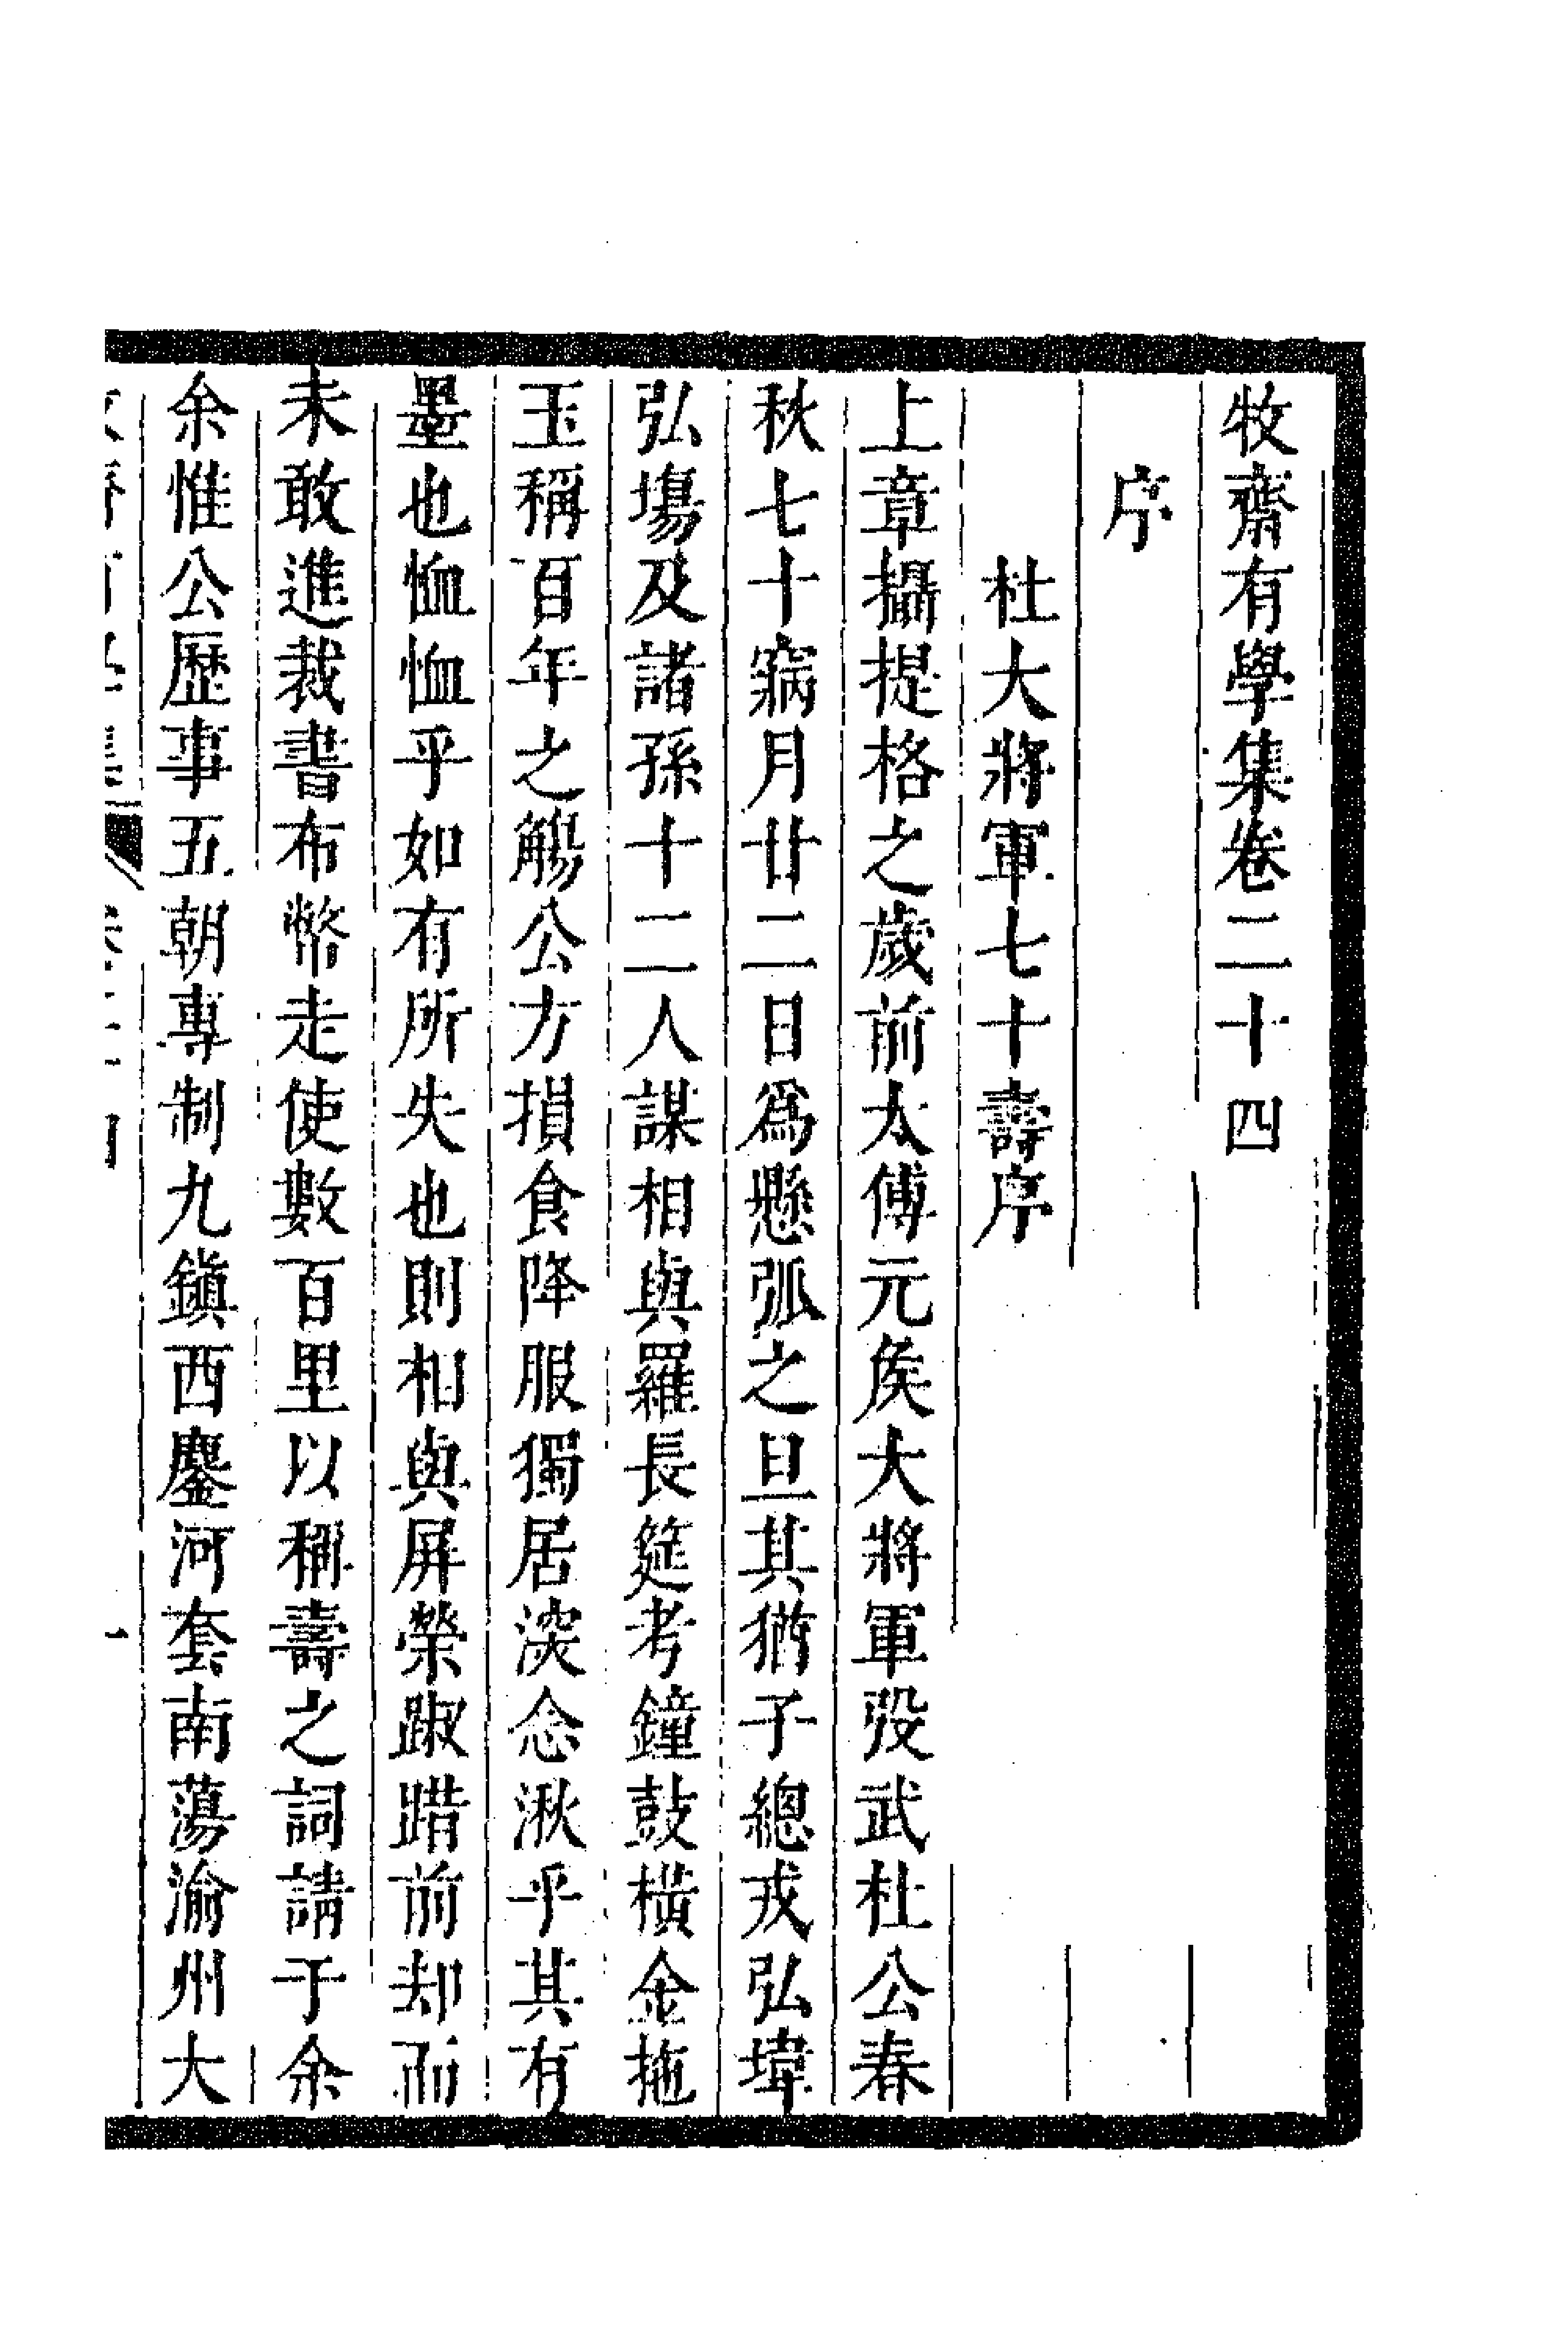 牧齋有學集卷二十四
序
杜大將軍七十壽序
上章攝提格之歲前太傅元侯大將軍弢武杜公春
秋七十寎月廿二日爲懸弧之旦其猶子總戎弘㙔
弘塲及諸孫十二人謀相與羅長筵考鐘鼓橫金拖
玉稱百年之觴公方損食降服獨居深念湫乎其有
墨也恤恤乎如有所失也則相與屏營踧踖前却而
未敢進裁書布幣走使數百里以稱壽之詞請于余
余惟公歷事五朝專制九鎮西鏖河套南蕩渝州大